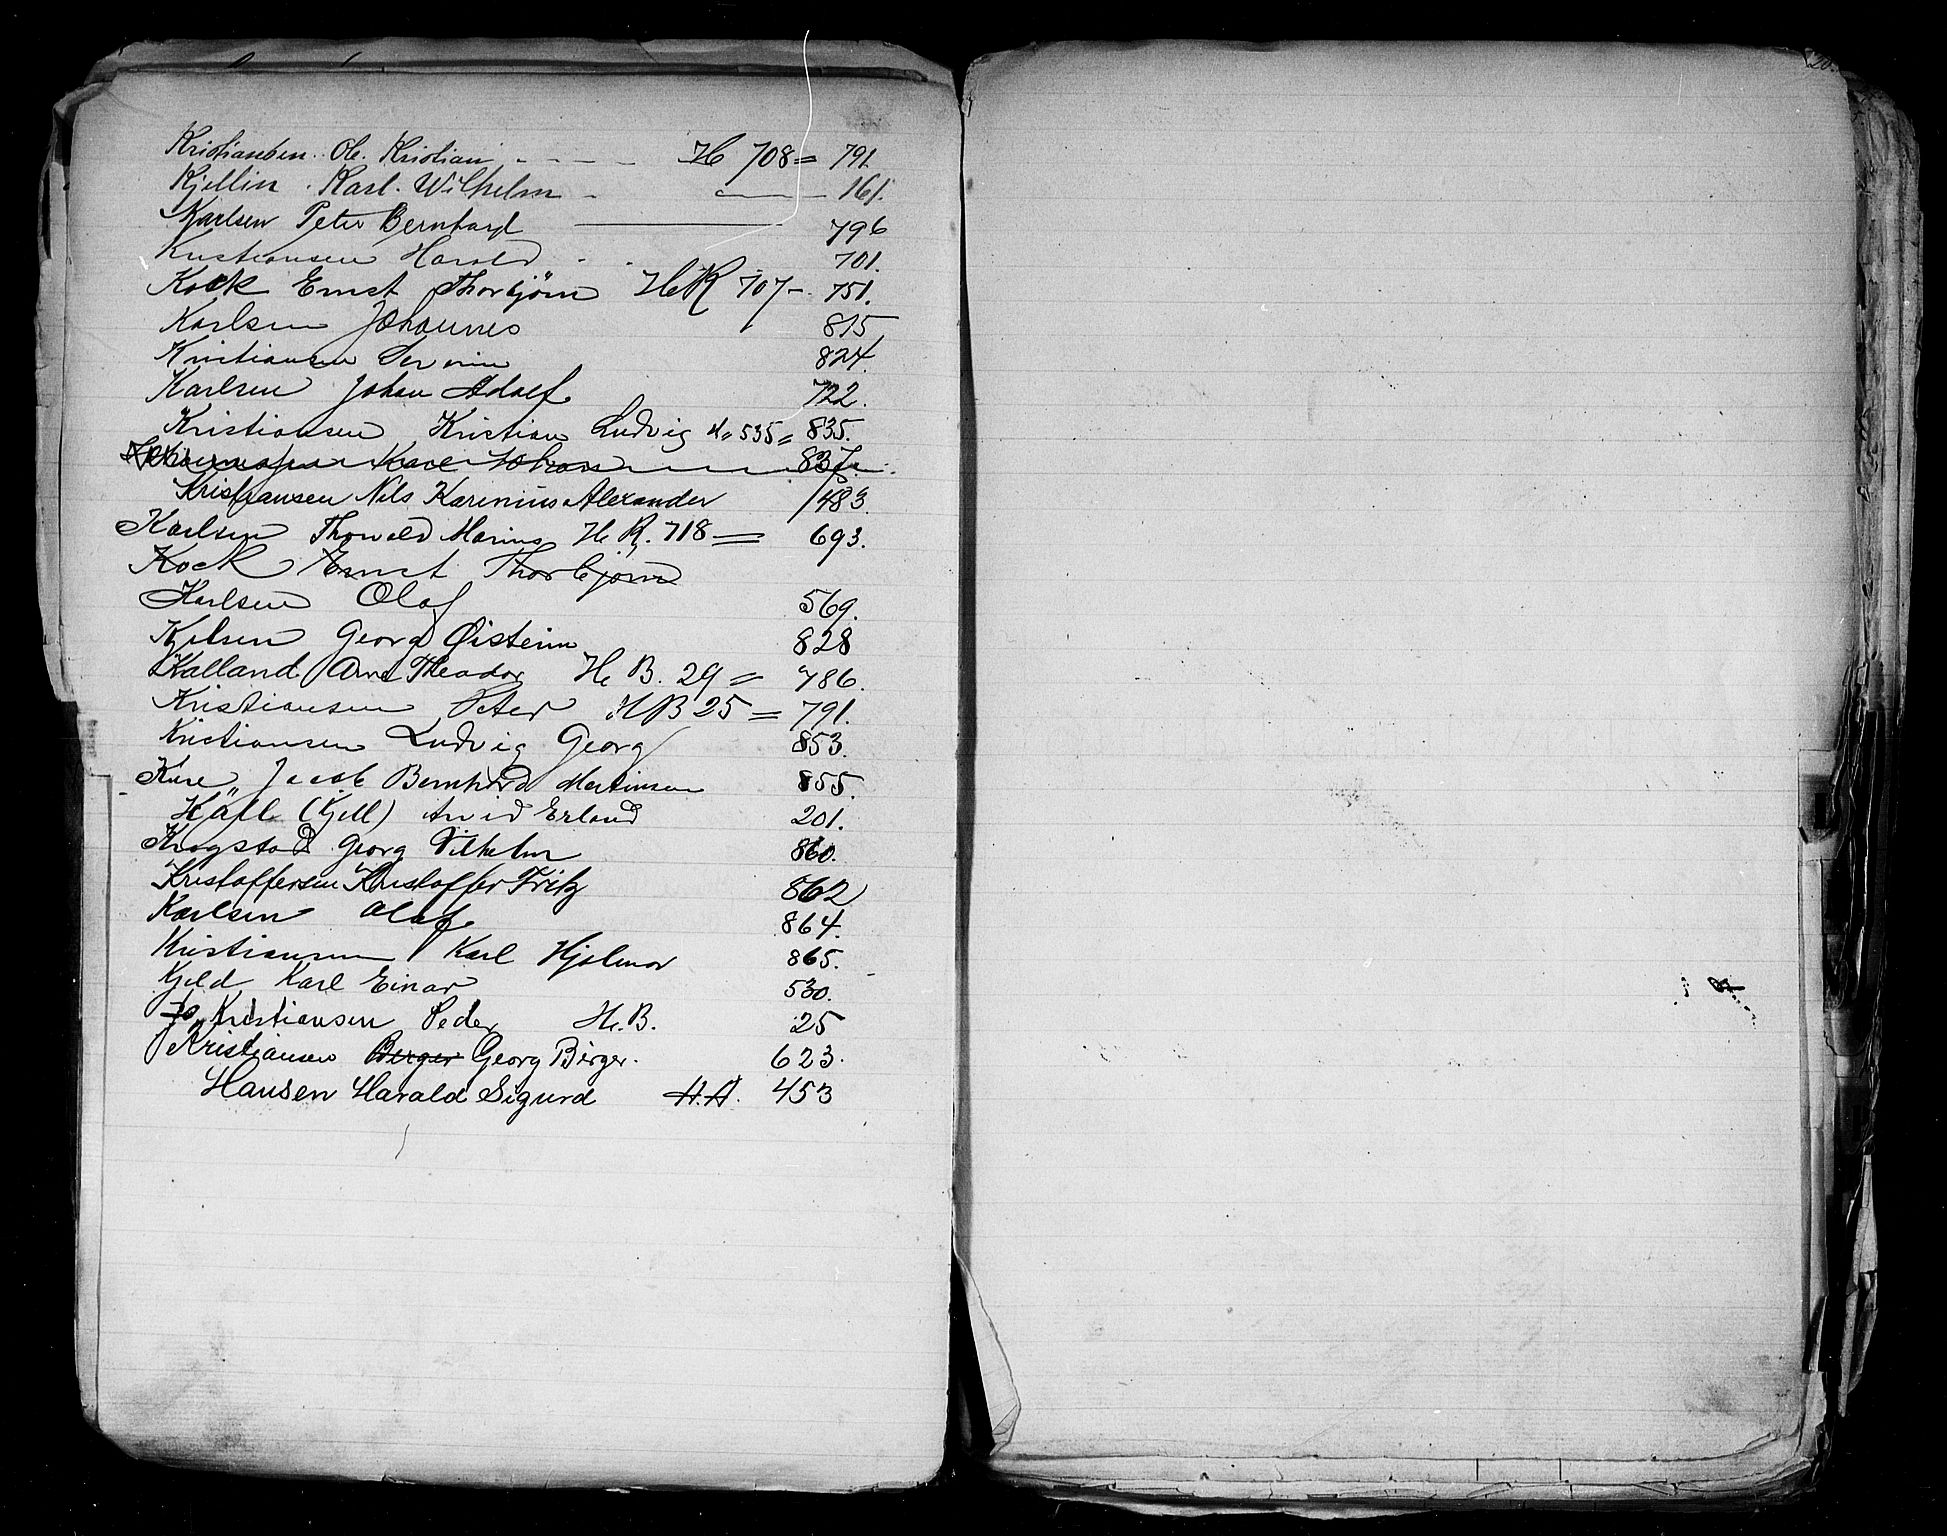 Kristiansen. Ole. Kristian - - - - H 708 = 791.
Kjellin. Karl. Wilhelm - — 161.
Karlsen Peter Bernhard — 796
Kristiansen Harald - - 701.
Kock Ernst Thorbjörn HR 707 - 751.
Karlsen Johannes 815
Kristiansen Severin 824.
Karlsen Johan Adolf. 722.
Kristiansen Kristian Ludvig H. 535 = 835.
Karl Johan 837.
Kristiansen Nils Karinius Alexander 1483.
Karlsen Thorvald Marius H R. 718 = 693.
Kock Ernst Thorbjörn
Karlsen Olaf 569.
Kjelsen Georg Øistein 828
Kalland Arne Theodor H B. 29 = 786.
Kristiansen Peter H B 25 = 791.
Kristiansen Ludvig Georg 853.
Kure Jacob Bernhard Martinsen 855.
Käll (Kjell) Arvid Erland 201.
Krogstad Georg Vilhelm 860.
Kristoffersen Kristoffer Fritz 862
Karlsen Olaf 864.
Kristiansen Karl Hjalmar 865.
Kjeld Karl Einar 530.
Kristiansen Peder H. B. 25
Kristiansen Birger Georg Birger. 623.
Hansen Harald Sigurd A.A. 453
20.